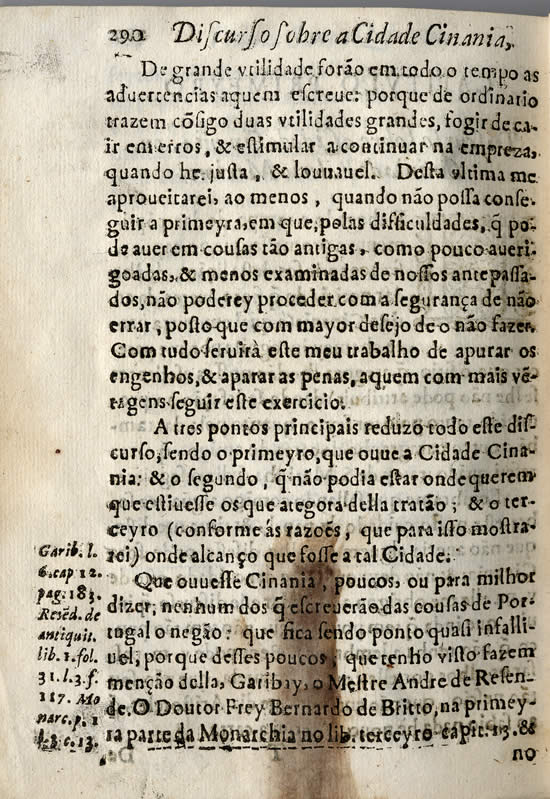 290 Diſcurſo ſobre a Cidade Cinania,
De grande vtilidade forão em todo o tempo as
aduertencias aquem eſcreue: porque de ordinario
trazem cõſigo duas vtilidades grandes, fogir de ca-
ir em erros, & eſtimular a continuar na empreza,
quando he juſta, & louuauel. Deſta vltima me
aproueitarei, ao menos, quando não poſſa conſe-
guir a primeyra, em que, pelas difficuldades, q̃ po-
de auer em couſas tão antigas, como pouco aueri-
goadas, & menos examinadas de noſſos antepaſſa-
dos, não poderey proceder com a ſegurança de não
errar, poſto que com mayor deſejo de o não fazer.
Com tudo ſeruirà eſte meu trabalho de apurar os
engenhos, & aparar as penas, aquem com mais vẽ-
tagens ſeguir eſte exercicio.
A tres pontos principais reduzo todo eſte diſ-
curſo, ſendo o primeyro, que ouue a Cidade Cina-
nia: & o ſegundo, q̃ não podia eſtar onde querem
que eſtiueſſe os que ategora della tratão; & o ter-
ceyro (conforme ás razoẽs, que para iſſo moſtra-
rei) onde alcanço que foſſe a tal Cidade.
Que ouueſſe Cinania, poucos, ou para milhor
dizer, nenhum dos q̃ eſcreuerão das couſas de Por-
tugal o negão: que fica ſendo ponto quaſi infalli-
uel, porque deſſes poucos, que tenho viſto fazem
menção della, Garibay, o Meſtre Andre de Reſen-
de, O Doutor Frey Bernardo de Britto, na primey-
ra parte da Monarchia no lib. terceyro capit. 13. &
no
Garib. l.
6. cap 12.
pag. 183.
Reſẽd. de
antiquit.
lib. 1. fol.
31. l. 3. f.
117. Mo
narc. p. 1
l. 3. c. 13.